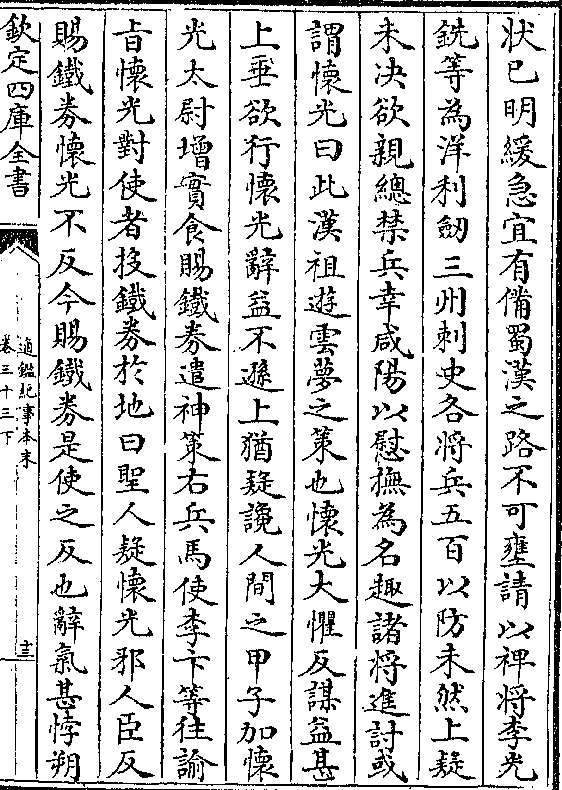 狀已明緩急宜有備蜀漢之路不可壅請以裨將李光
銑等為洋利劒三州刺史各將兵五百以防未然上疑
未決欲親總禁兵幸咸陽以慰撫為名趣諸將進討或
謂懷光曰此漢祖遊雲夢之策也懷光大懼反謀益甚
上垂欲行懷光辭益不遜上猶疑讒人間之甲子加懷
光太尉增實食賜鐵券遣神策右兵馬使李卞等往諭
㫖懷光對使者投鐵券於地曰聖人疑懷光邪人臣反
賜鐵券懷光不反今賜鐵券是使之反也辭氣甚悖朔
欽定四庫全書
通鑑紀事本末
卷三十三下